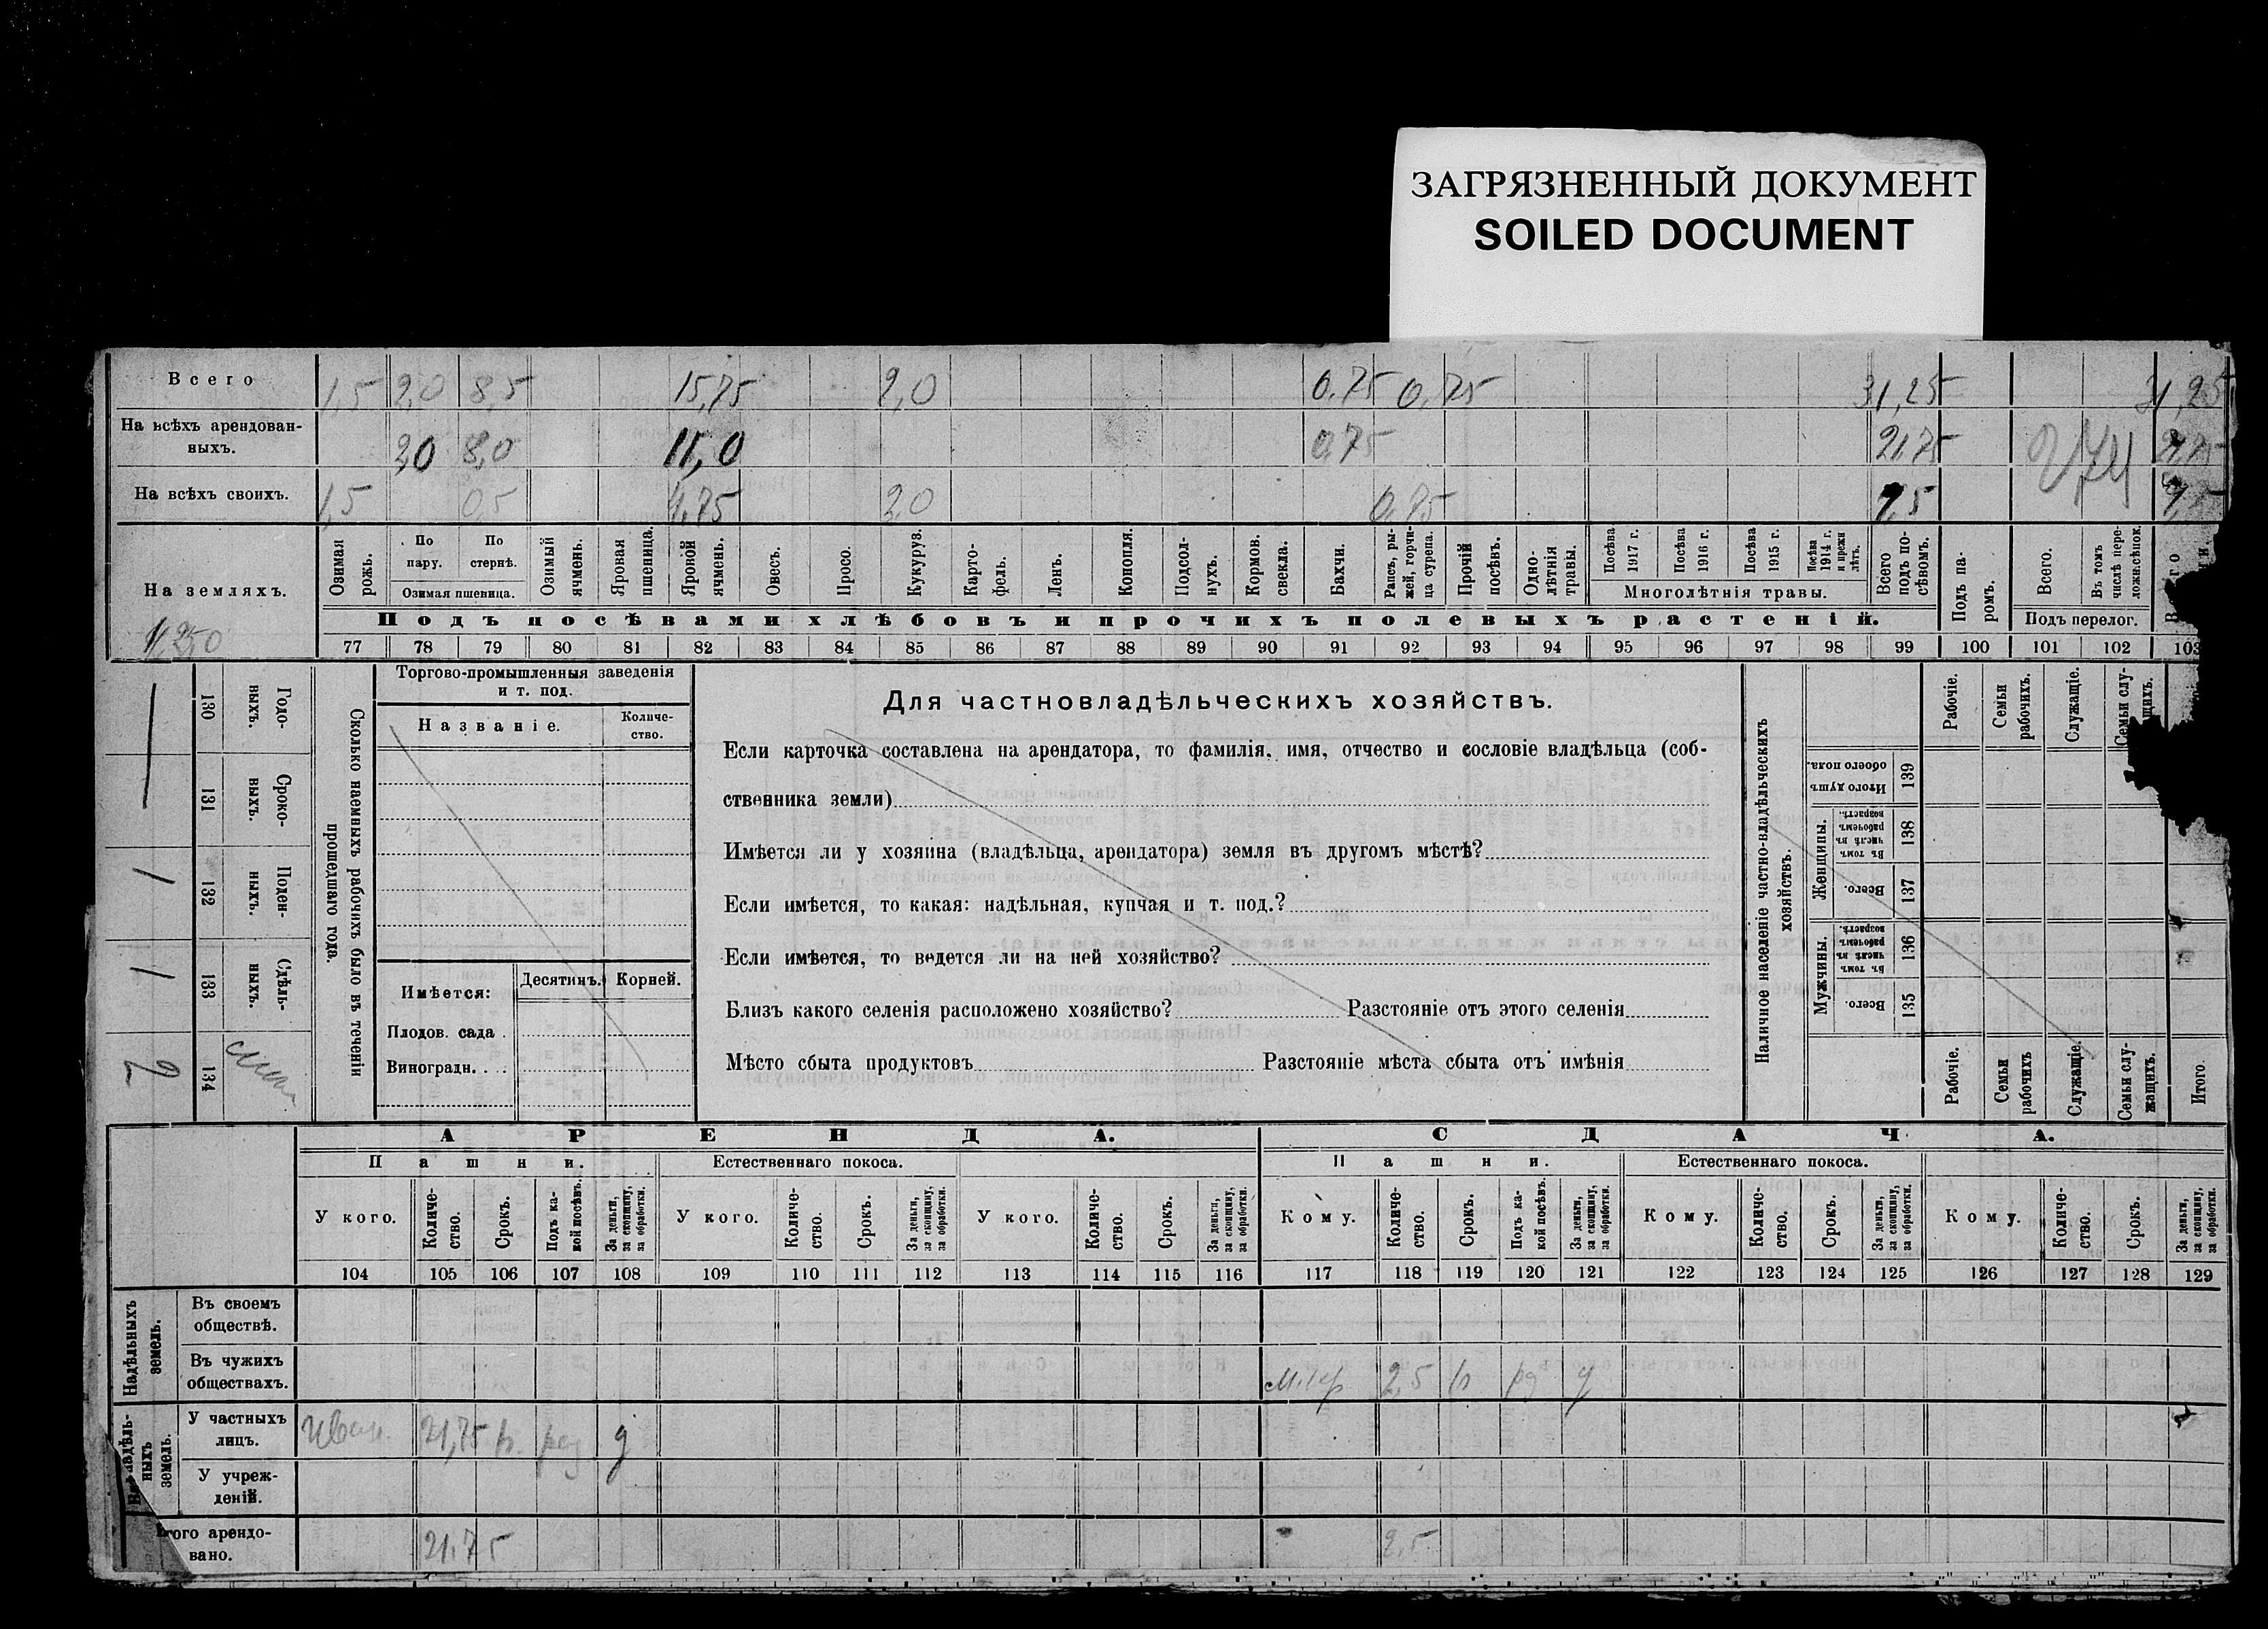 ЗАГРЯЗНЕННЫЙ ДОКУМЕНТ
SOILED DOCUMENT
Всего 1,5 2,0 8,5 15,75 2,0 0,75 0,75 31,25 31,25
На всѣхъ арендован-
ныхъ. 8,0 11,0 0,75 21,75
На всѣхъ своихъ. 1,5 0,5 4,75 2,0 0,75
На земляхъ.
Озимая рожь.
По пару.
По стернѣ.
Озимая пшеница.
Озимый ячмень.
Яровая пшеница.
Яровой ячмень.
Овесъ.
Просо.
Кукуруз.
Карто-
фель.
Ленъ.
Конопля.
Подсол-
нухъ.
Кормов. свекла.
Бахчи.
Рапсъ, ры-
жей, горчи-
ца сурепа.
Прочій посѣвъ.
Одно-
лѣтнія травы.
Посѣва 1917 г.
Посѣва 1916 г.
Посѣва 1915 г.
Посѣва 1914 г. и прежн лѣтъ.
Многолѣтнія травы.
Всего подъ по-
сѣвомъ.
Подъ па-
ромъ.
Всего.
Въ томъ числѣ пере-
Подъ перелог.
Подъ посѣвами хлѣбовъ и прочихъ полевыхъ растеній.
77 78 79 80 81 82 83 84 85 86 87 88 89 90 91 92 93 94 95 96 97 98 99 100 101 102 103
130 Годо-
выхъ.
131 Сроко-
выхъ.
132 Поден-
ныхъ.
133 Сдѣль-
ныхъ.
134
Сколько наемныхъ рабочихъ было въ теченіи
прошедшаго года.
Торгово-промышленныя заведенія
и т. под.
Названіе.
Количе-
ство.
Имѣется:
Десятинъ. Корней.
Плодов. сада .
Виноградн. . .
Для частновладѣльческихъ хозяйствъ.
Если карточка составлена на арендатора, то фамилія, имя, отчество и сословіе владѣльца (соб-
ственника земли)
Имѣется ли у хозяина (владѣльца, арендатора) земля въ другомъ мѣстѣ?
Если имѣется, то какая: надѣльная, купчая и т. под.?
Если имѣется, то ведется ли на ней хозяйство?
Близъ какого селенія расположено хозяйство? Разстояніе отъ этого селенія
Мѣсто сбыта продуктовъ Разстояніе мѣста сбыта отъ имѣнія
Наличное населеніе частно-владѣльческихъ
хозяйствъ.
Рабочіе.
Семьи рабочихъ.
Служащіе.
Итого душъ обоего пола. 139
Женщины.
Въ томъ числѣ въ рабочемъ возрастѣ. 138
Всего. 137
Мужчины.
Въ томъ числѣ въ рабочемъ возрастѣ. 136
Всего. 135
Рабочіе.
Семьи рабочихъ
Служащіе.
Семьи слу-
жащихъ.
Итого.
АРЕНДА. СДАЧА.
Пашни. Естественнаго покоса. Пашни. Естественнаго покоса.
У кого.
Количе-
ство.
Срокъ.
Подъ ка-
кой посѣвъ.
За деньги,
за скопщину,
за обработки.
У кого.
Количе-
ство.
Срокъ.
За деньги,
за скопщину,
за обработки.
У кого.
Количе-
ство.
Срокъ.
За деньги,
за скопщину,
за обработки.
Кому.
Количе-
ство.
Срокъ.
Подъ ка-
кой посѣвъ.
За деньги,
за скопщину,
за обработки.
Кому.
Количе-
ство.
Срокъ.
За деньги,
за скопщину,
за обработки.
Кому.
Количе-
ство.
Срокъ.
За деньги,
за скопщину,
за обработки.
104 105 106 107 108 109 110 111 112 113 114 115 116 117 118 119 120 121 122 123 124 125 126 127 128 129
Надѣльныхъ
земель.
Въ своемъ
обществѣ.
Въ чужихъ
обществахъ. 2,5
ныхъ
земель.
У частныхъ
лицъ. 21,75
У учреж-
деній.
арендо-
вано. 21,75 2,5